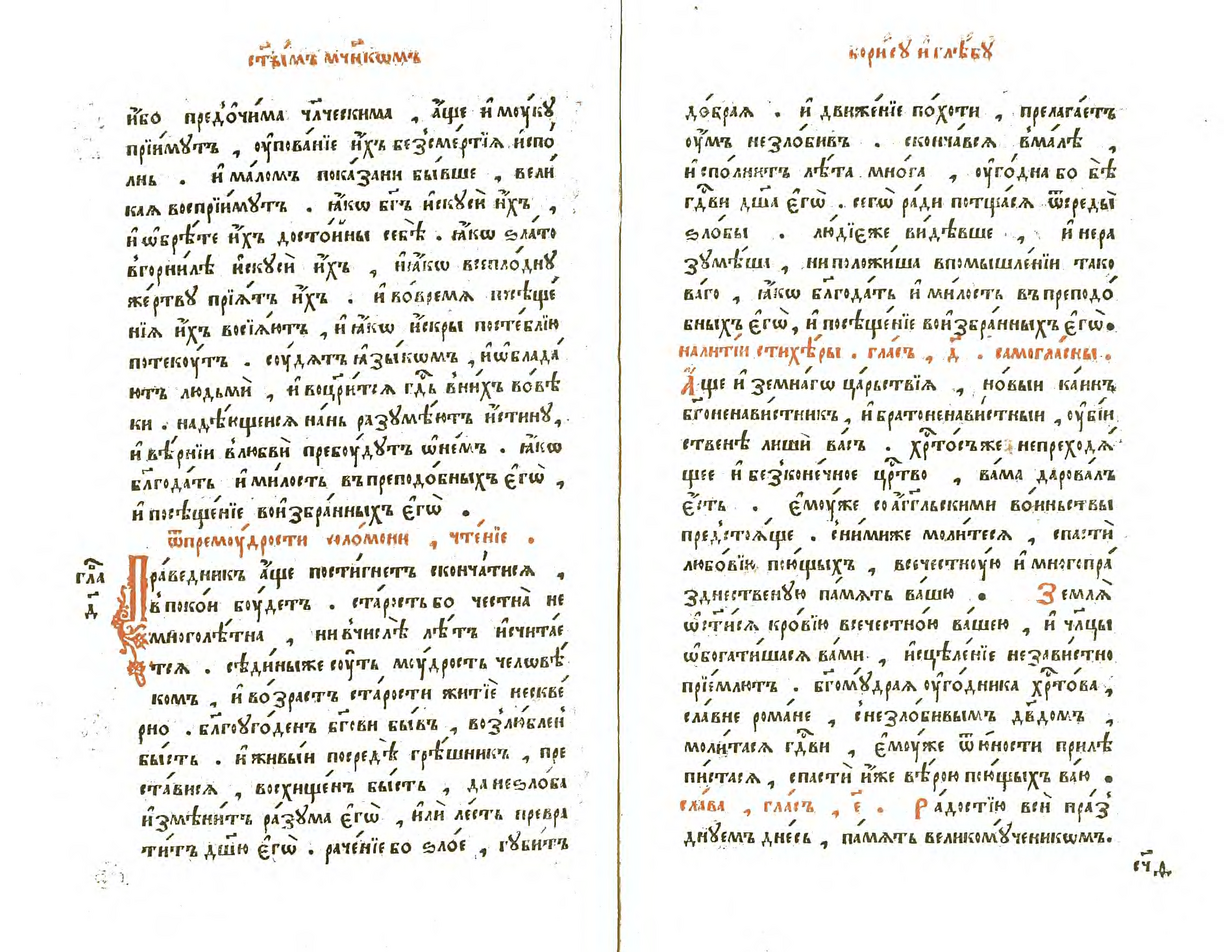 ст҃ы́мъ мч҃нкѡмъ
и҆́бо предо́чи́ма чл҃ческима , а҆́ще и҆ моу́кꙋ
прїи́мꙋтъ , ᲂу҆пова́нїе и҆́хъ безсме́ртїѧ и҆спо
лнь . и҆ ма́ломъ показа́ни бы́вше , вели
каѧ воспрїи́мꙋтъ . ꙗ҆́кѡ бг҃ъ и҆скꙋсѝ и҆́хъ ,
и҆ ѡ҆брѣ́те и҆́хъ досто́йны себѣ̀ . ꙗ҆́кѡ ѕла́то
вгорни́лѣ и҆скꙋсѝ и҆́хъ , и҆ ꙗ҆́кѡ всепло́днꙋ
же́ртвꙋ прїѧ́тъ и҆́хъ . и҆ во́времѧ посѣще́
нїѧ и҆́хъ восїѧ́ютъ , и҆ ꙗ҆́кѡ и҆́скры постеблїю
потекоу́тъ . соу́дѧтъ ꙗ҆зы́кѡмъ , и҆ ѡ҆блада́
ютъ людьмѝ , и҆ воцр҃и́тсѧ гд҇ь вни́хъ во́вѣ
ки . надѣ́ющеисѧ на́нь разꙋмѣ́ютъ и҆́стинꙋ,
и҆ вѣ́рнїи влюбвѝ пребоу́дꙋтъ ѡ҆не́м . ꙗ҆́кѡ
бл҃года́ть и҆ ми́лость въпреподо́бныхъ є҆гѡ̀ ,
и҆ посѣще́нїе вои҆збра́нныхъ є҆гѡ̀ .
ѿпремоу́дрости соломони , чте́нїе .
гла
д҃
Пра́ведникъ а҆́ще пости́гнетъ сконча́тисѧ ,
впоко́и боу́детъ . ста́рость бо честна̀ не
многолѣ́тна , ни вчислѣ̀ лѣ́тъ и҆счита́е
тсѧ . сѣди́ныже соу́ть моу́дрость человѣ́
комъ , и҆ во́зрастъ ста́рости житїѐ нескве́
рно . бл҃гоᲂуго́денъ бг҃ови бы́въ , возлю́блен
бы́сть . и҆ живы́и посредѣ̀ грѣ́шникъ , пре
ста́висѧ , восхище́нъ бы́сть , да неѕло́ба
и҆змѣни́тъ ра́зꙋма є҆гѡ̀ , и҆лѝ ле́сть превра
ти́тъ дш҃ю є҆гѡ̀ . раче́нїе бо ѕло́е , гꙋ́битъ
бори́сꙋ и҆ глѣ́бꙋ
до́браѧ . и҆ движе́нїе по́хоти , прелага́етъ
ᲂу҆́мъ незло́бивъ . сконча́всѧ вма́лѣ ,
и҆спо́лнитъ лѣ́та мно́га , ᲂу҆го́дна бо бѣ̀
гд҇ви дш҃а є҆гѡ̀ . сегѡ̀ ра́ди потща́сѧ ѿ среды̀
ѕло́бы . лю́дїеже ви́дѣвше , и҆ нера
зꙋмѣ́ша , ни положи́ша впомышле́нїи тако
ва́го , ꙗ҆́кѡ бл҃года́ть и҆ ми́лость въпреподо́
бныхъ є҆гѡ̀, и҆ посѣще́нїе вои҆збра́нныхъ є҆гѡ̀.
налитїи стихе́ры . гла́съ , д҃ . самогла́сны .
А҆́ще и҆ земна́гѡ ца́рьствїѧ , но́выи ка́инъ
бг҃оненави́стникъ , и҆ братоненави́стныи , ᲂу҆бі́и
ственѣ лишѝ ва́съ . хр҇то́съже непреходѧ́
щее и҆ безконе́чное цр҇тво , ва́ма дарова́лъ
є҆́сть . є҆моу́же со а҆́гг҃льскими во́иньствы
предстоѧ́ще . сни́миже моли́тесѧ , спастѝ
любо́вїю пою́щыхъ , всечестноу́ю и҆ многопра́
здиественꙋю па́мѧть ва́шю . Землѧ̀
ѡ҆ст҃и́сѧ кро́вїю всечестно́ю ва́шею , и҆ чл҃цы
ѡ҆богати́шасѧ ва́ми , и҆сцѣле́нїе незави́стно
прїе́млютъ . бг҃омꙋ́драѧ ᲂу҆го́дника хр҇то́ва ,
сла́вне рома́не , снезло́бивымъ дв҃домъ ,
моли́тасѧ гд҇ви , є҆моу́же ѿ ю҆́ности прилѣ́
пистасѧ , спастѝ и҆́же вѣ́рою пою́щыхъ ва́ю .
сла́ва , гла́съ , є҃ . Ра́достїю всѝ пра́з
днꙋемъ дне́сь , па́мѧть великомꙋченикѡмъ.
сч҃д